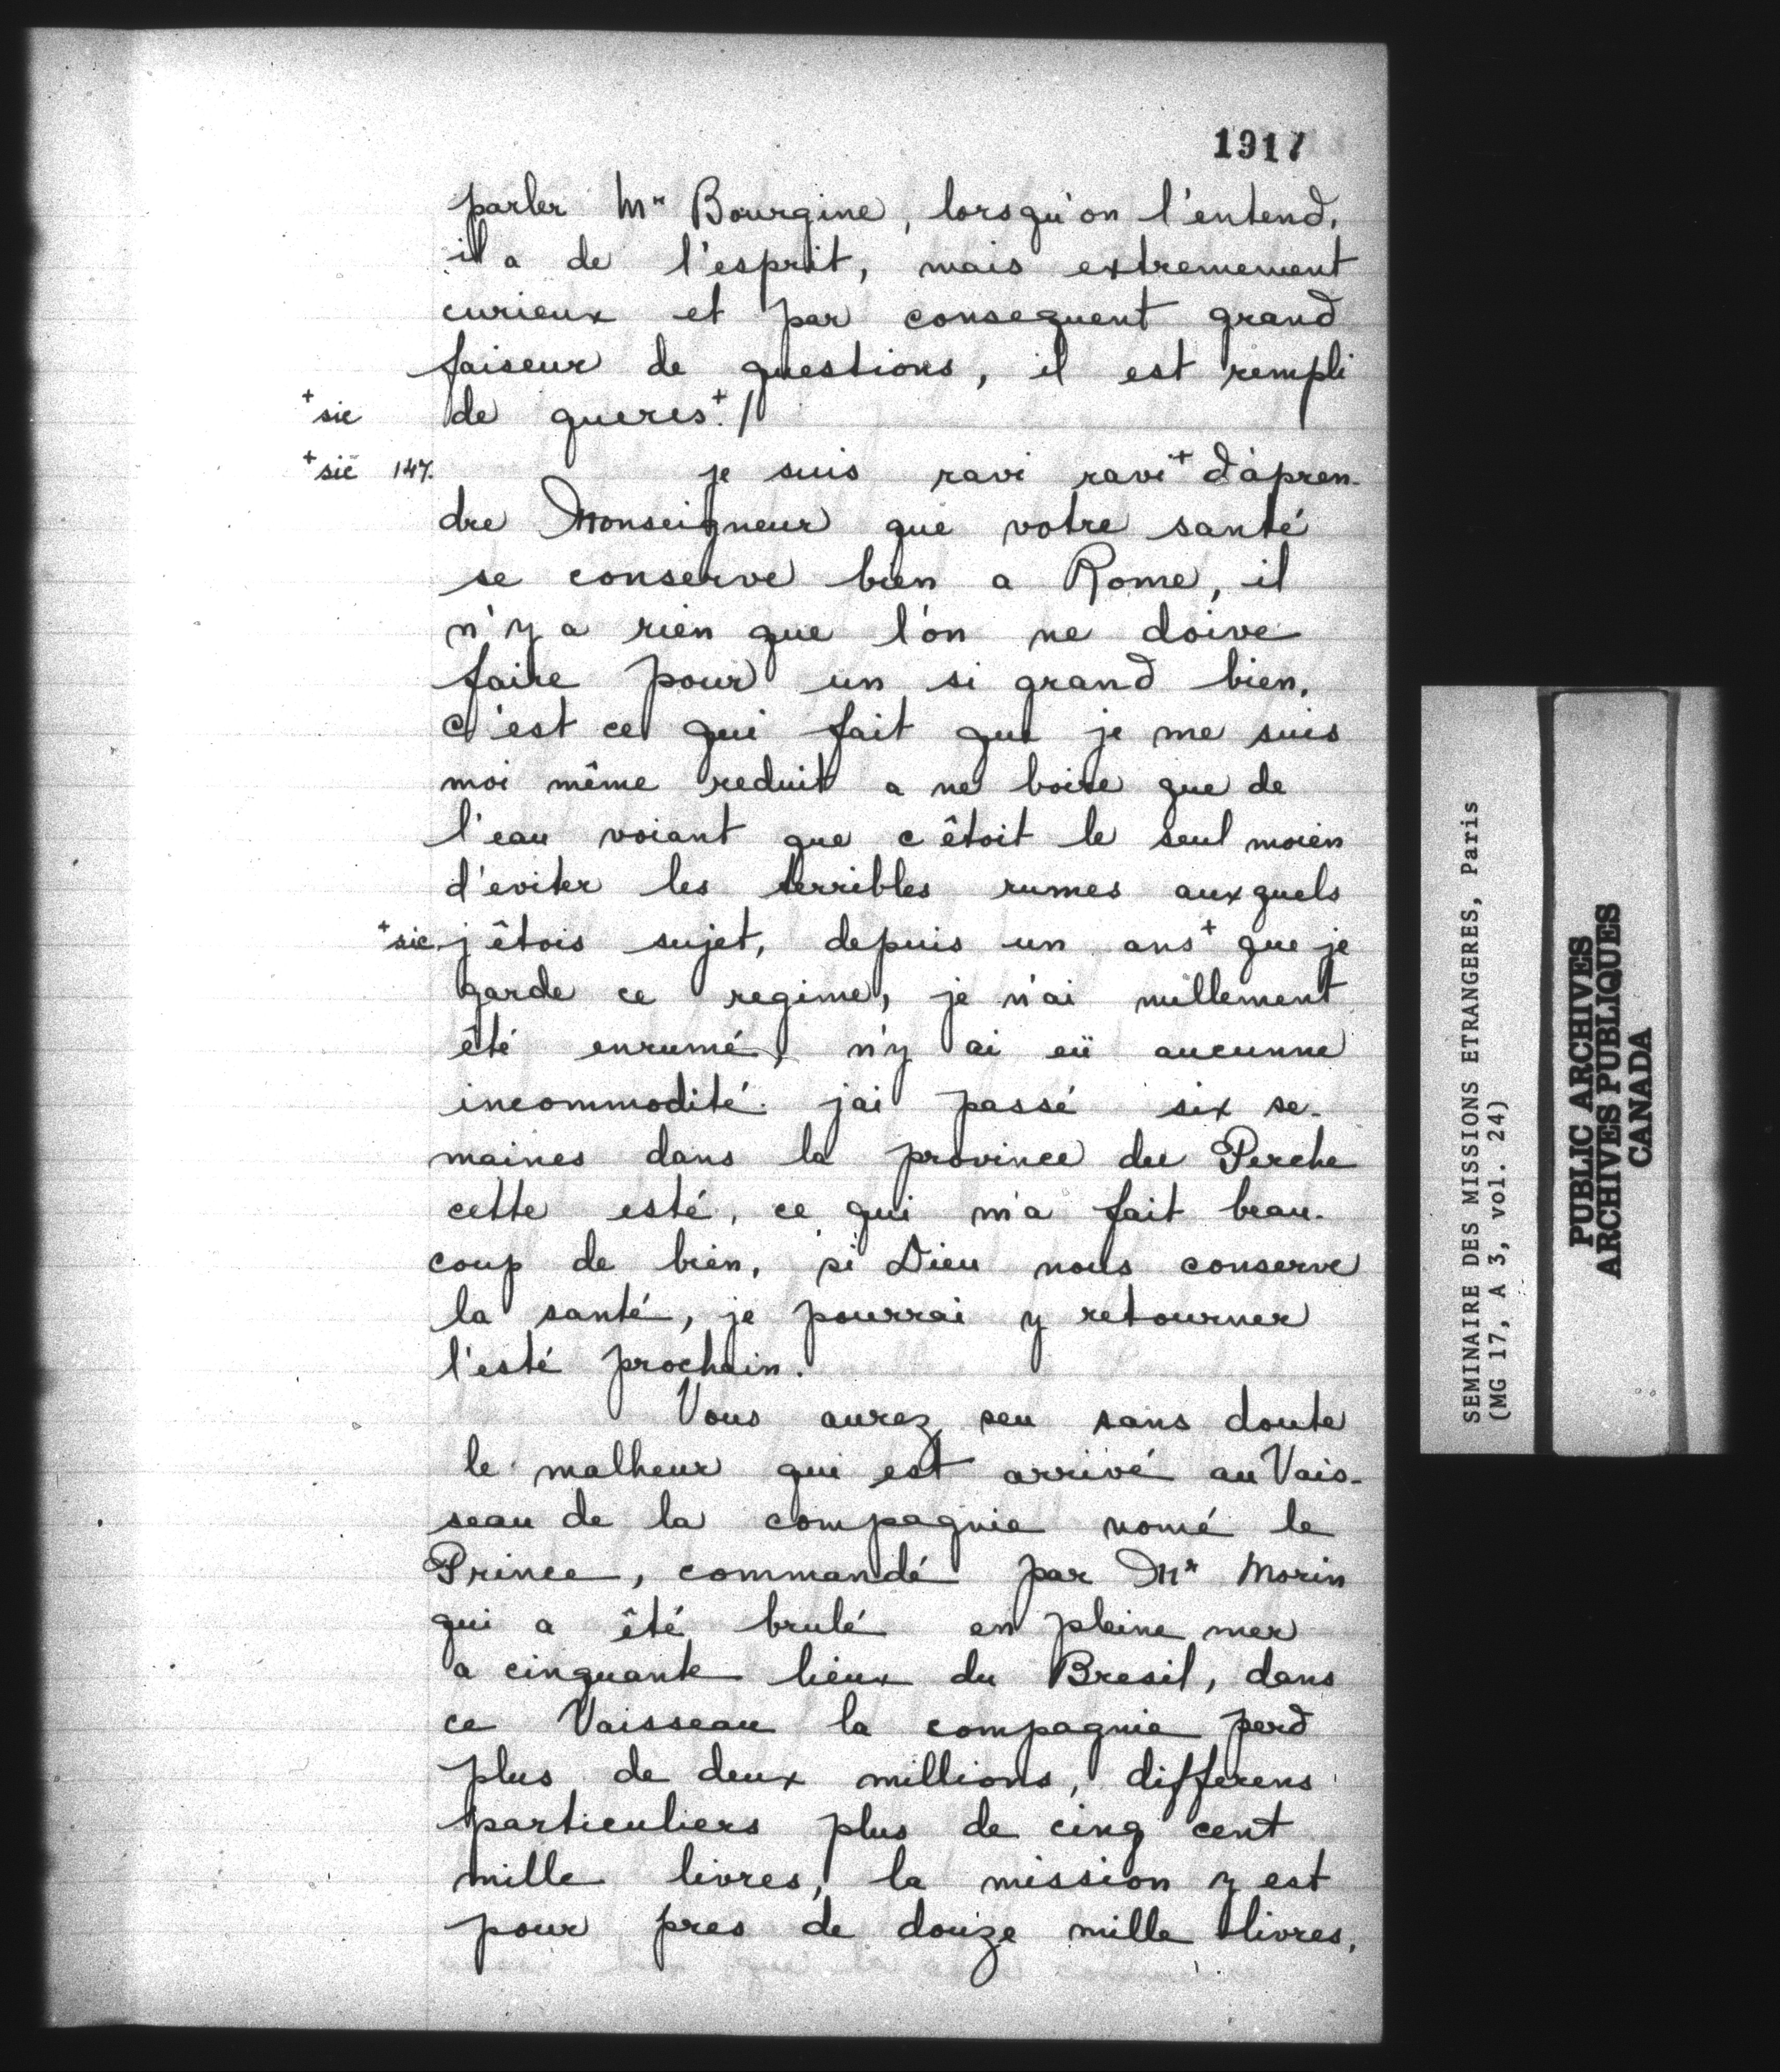 1917
parler Mr Bourgine, lorsqu'on l'entend,
il a de l'esprit, mais extremement
curieux et par consequent grand
faiseur de questions, il est rempli
+sic de queres+./
+sic 147. je suis ravi ravi+ d'àpren-
dre Monseigneur que votre santé
se conserve bien a Rome, il
n'y a rien que l'on ne doive
faire pour un si grand bien,
c'est ce qui fait que je me suis
moi même reduit a ne boire que de
l'eau voiant que c'êtoit le seul moien
d'eviter les terribles rumes auxquels
+sic j'êtois sujet, depuis un ans+ que je
garde ce regime, je n'ai nullement
êté enrumé, n'y ai eü aucunne
incommodité. jai passé six se-
maines dans la province du Perche
cette esté, ce qui m'a fait beau-
coup de bien, si Dieu nous conserve
la santé, je pourrai y retourner
l'esté prochain.
Vous aurez seu sans doute
le malheur qui est arrivé au Vais-
seau de la compagnie nomé le
Prince, commandé par Mr Morin
qui a êté brulé en pleine mer
a cinquante lieux du Bresil, dans
ce Vaisseau la compagnie perd
plus de deux millions, differens
particuliers plus de cinq cent
mille livres, la mission y est
pour pres de douze mille livres,
SEMINAIRE DES MISSIONS ETRANGERES, Paris
(MG 17, A 3, vol. 24)
PUBLIC ARCHIVES
ARCHIVES PUBLIQUES
CANADA